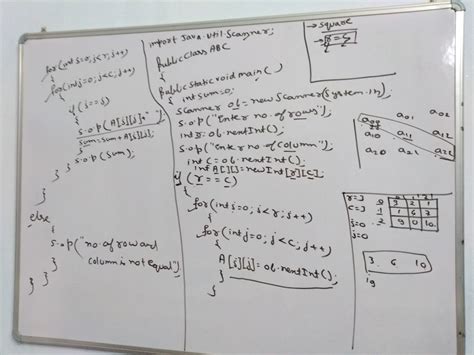 for(int i=0; i<r; i++)
{
for(int j=0; j<c; j++)
{
if(i==j)
{
S.o.p(A[i][j]+" ");
Sum=Sum+A[i][j];
}
S.o.p(Sum);
}
}
else
{
S.o.p("no. of row and
column is not equal");
}
} }
import Java.util.Scanner;
Public Class ABC
{
Public static void main(
{ int sum=0;
Scanner ob = new Scanner(System.in)
S.o.p("Enter no of rows");
int r = ob.nextInt();
S.o.p("Enter no of column");
int c = ob.nextInt();
int A[][]=new Int[r][c];
if (r == c)
{
for(int i=0; i<r; i++)
{
for(int j=0; j<c; j++)
{
A[i][j]=ob.nextInt();
}
}
→ square
→ r = c
a00 a01 a02
a10 a11 a12
a20 a21 a22
r=3
c=3
i=0
j=0
0 1 2
0 3 2 1
1 1 6 3
2 9 0 10
3 6 10
19